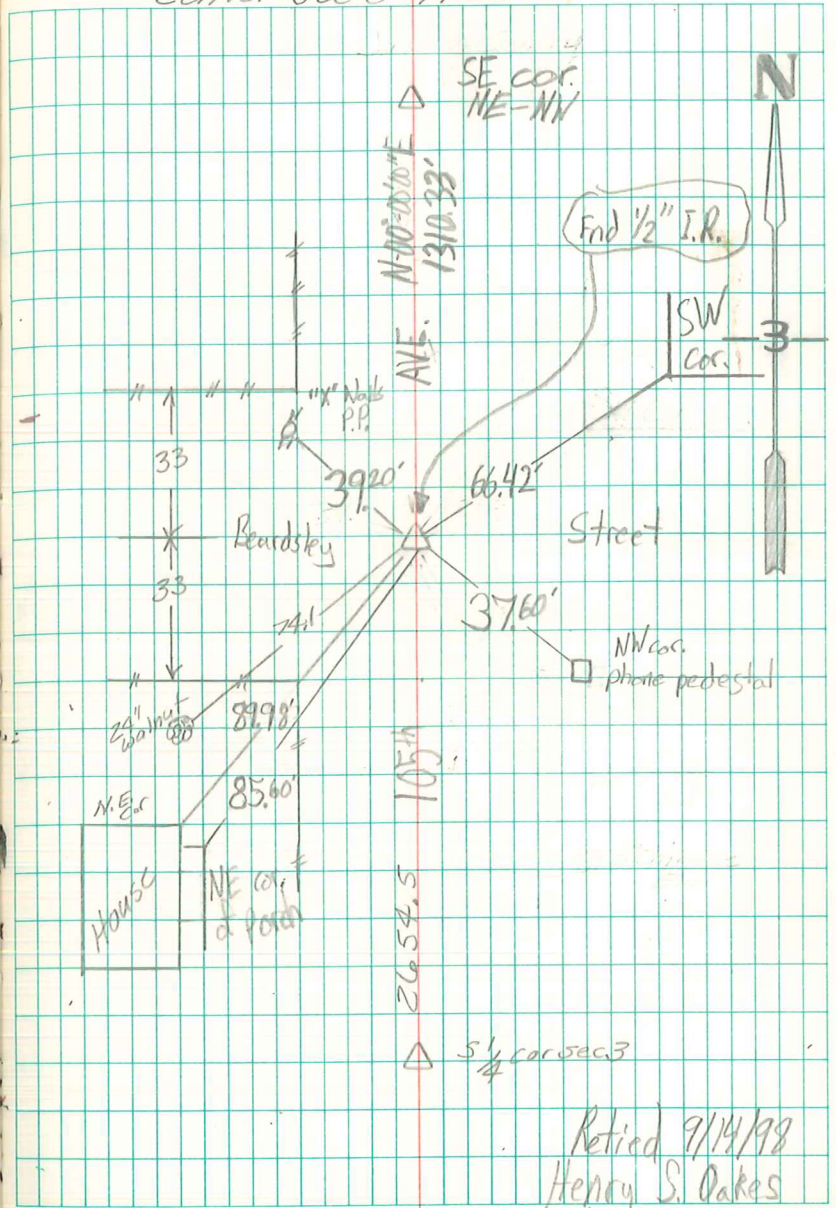 SE cor.
NE-NW
N
N-00°-00'00"E
1310.33'
Fnd 1/2" I.R.
SW
cor.
3
AVE.
"X" Nails
P.P.
33
39.20'
66.42'
Beardsley
Street
33
74.1
37.60'
NW cor.
phone pedestal
24"
walnut
89.98'
105th
85.60'
N.E.
Cor
House
NE cor.
of Porch
2654.5
S 1/4 cor sec 3
Retied 9/14/98
Henry S. Oakes